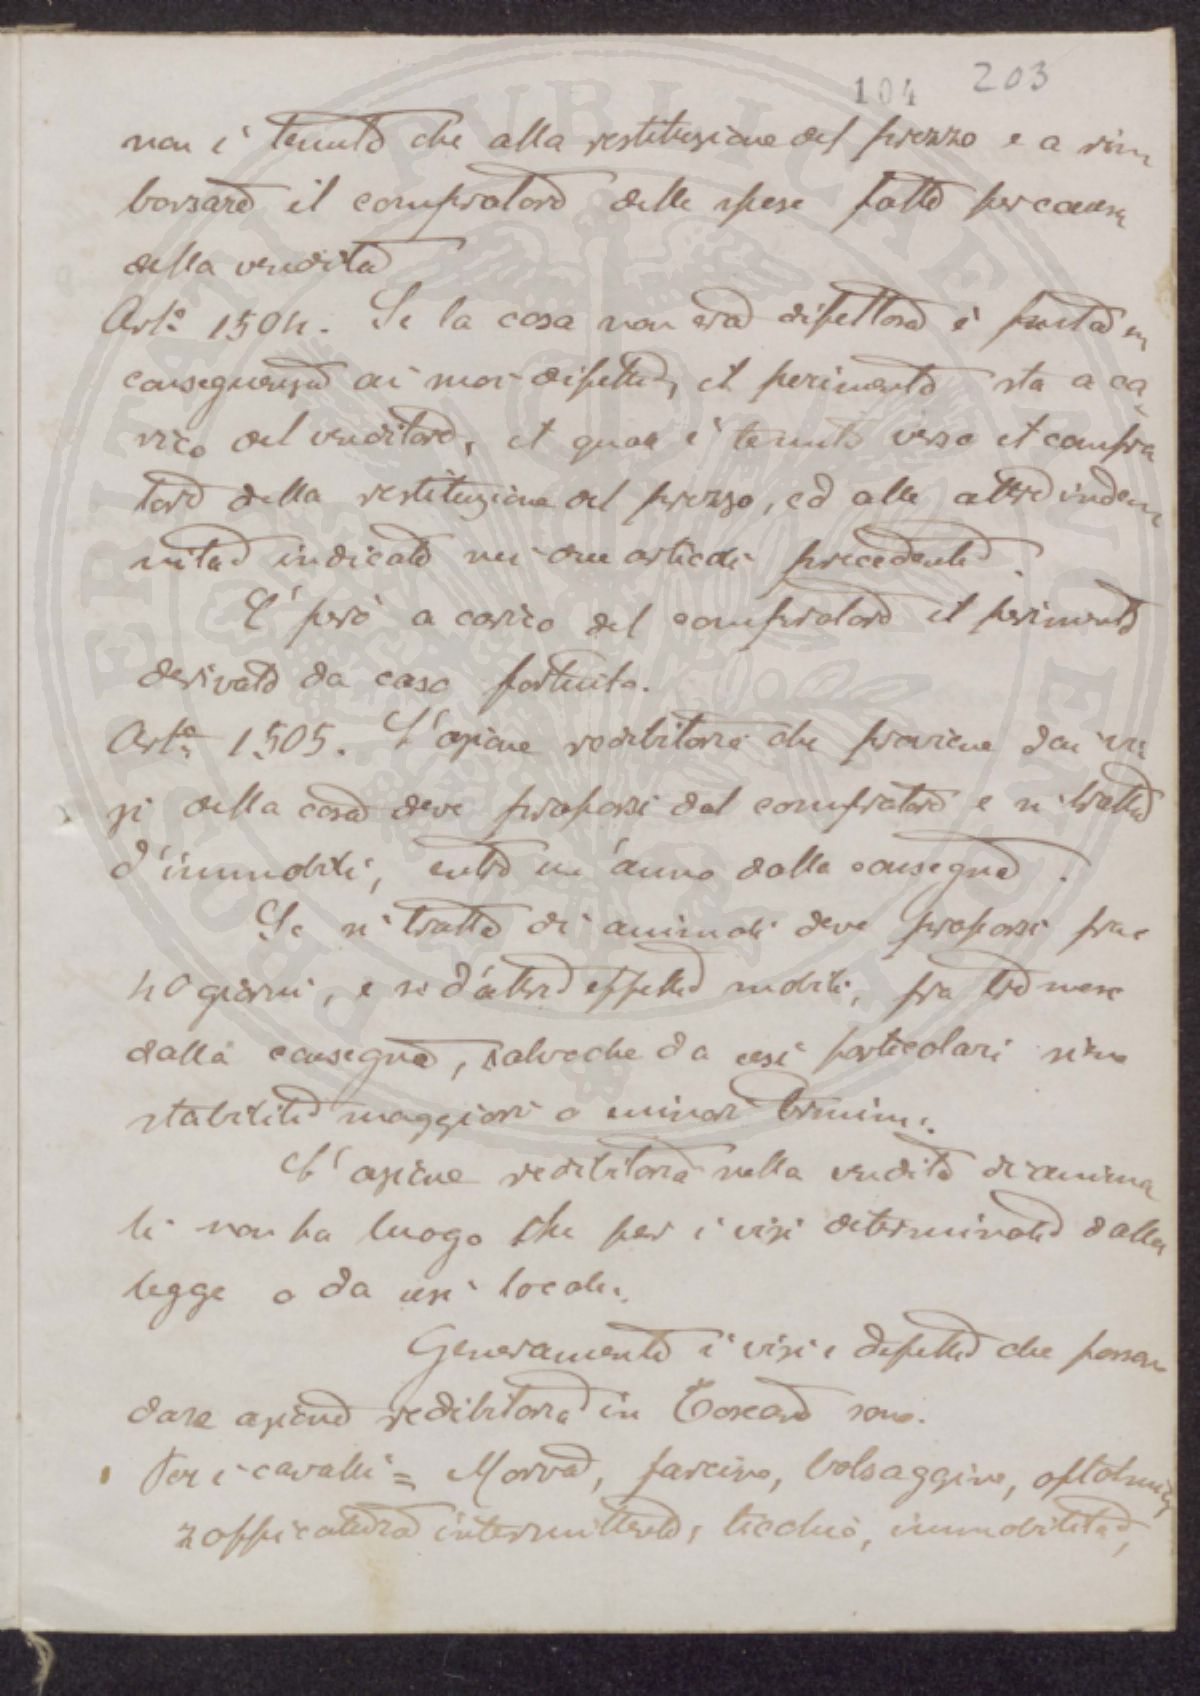 104 203
non è tenuto che alla restituzione del prezzo e a rim
borsare il compratore delle spese fatte per causa
della vendita
Art.º 1504. Se la cosa non era difettosa è perita in
conseguenza ai suoi difetti, il perimento sta a ca
rico del venditore, il quale è tenuto verso il compra
tore della restituzione del prezzo, ed alle altre inden
nità indicate nei due articoli precedenti.
E' però a carico del compratore il perimento
derivato da caso fortuito.
Art.º 1505. L'azione redibitoria che proviene dai vi
zi della cosa deve proporsi dal compratore e si tratta
d'immobili, entro un'anno dalla consegna.
Se si tratta di animali deve proporsi fra e
40 giorni, e se d'altri effetti mobili, fra tre mese
dalla consegna, salvoche da usi particolari siano
stabiliti maggiori o minori termini.
L'azione redibitoria nella vendita di anima
li non ha luogo che per i vizi determinati dalla
legge o da usi locali.
Generamente i vizi e difetti che possono
dare azione redibitoria in Toscana sono.
Per i cavalli = Morva, farcino, bolsaggine, oftalmia,
zoppicatura intermittente, ticchio, immobilità,
PROSPERITATI PVBLICAE AVGENDAE